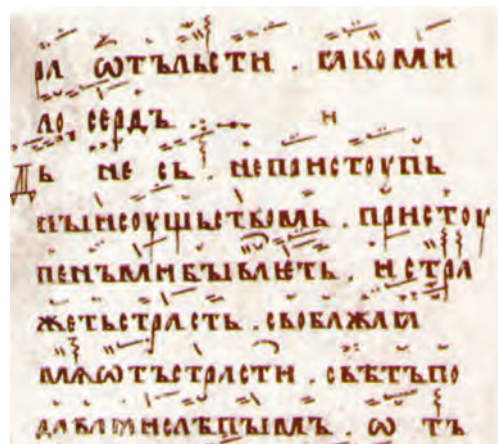 ра ѡтъльсти . ꙗкоми
ло сердъ . н
Дь не сь . непристоупь
ныисоущьствомь . пристоу
пенъмибываѥть . истра
жетьстрасть . свобажаꙗ
мѧѡтъстрасти . свѣтъпо
даваꙗислѣпымъ . ѡ тъ